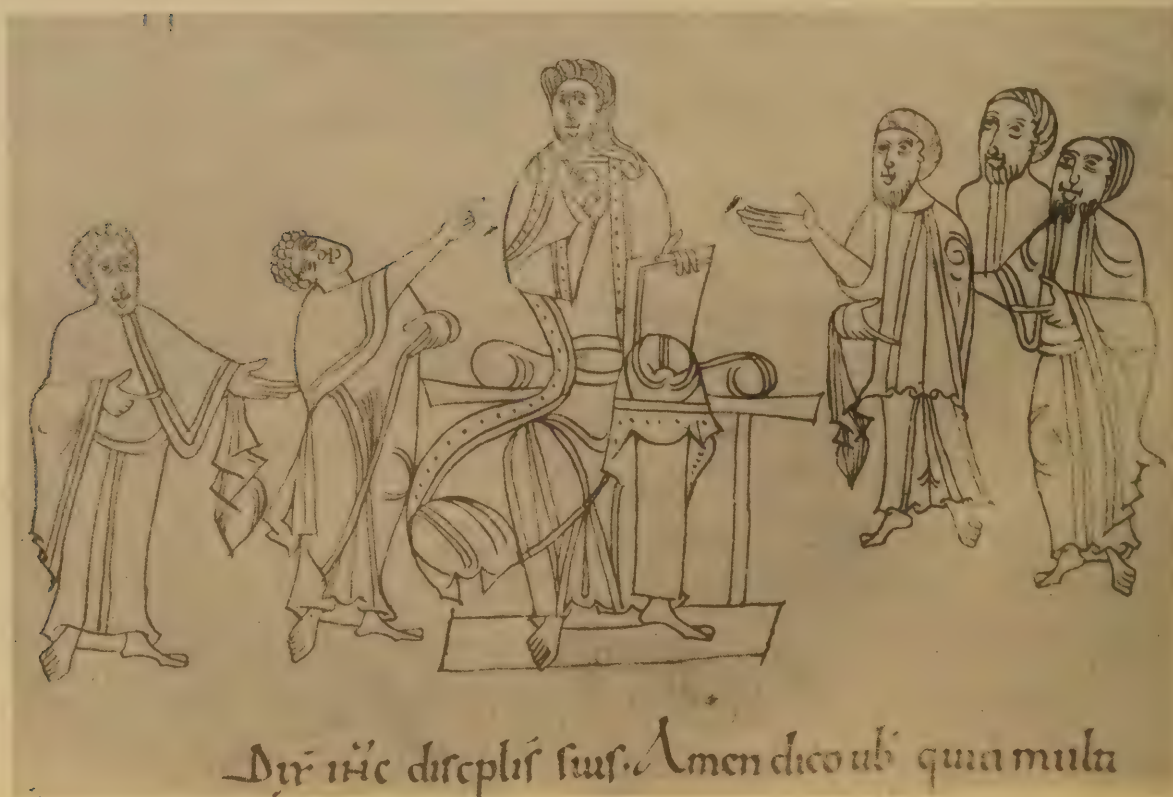 Dix̄ iħc discplīs suis. Amen dico uƀ quia multi